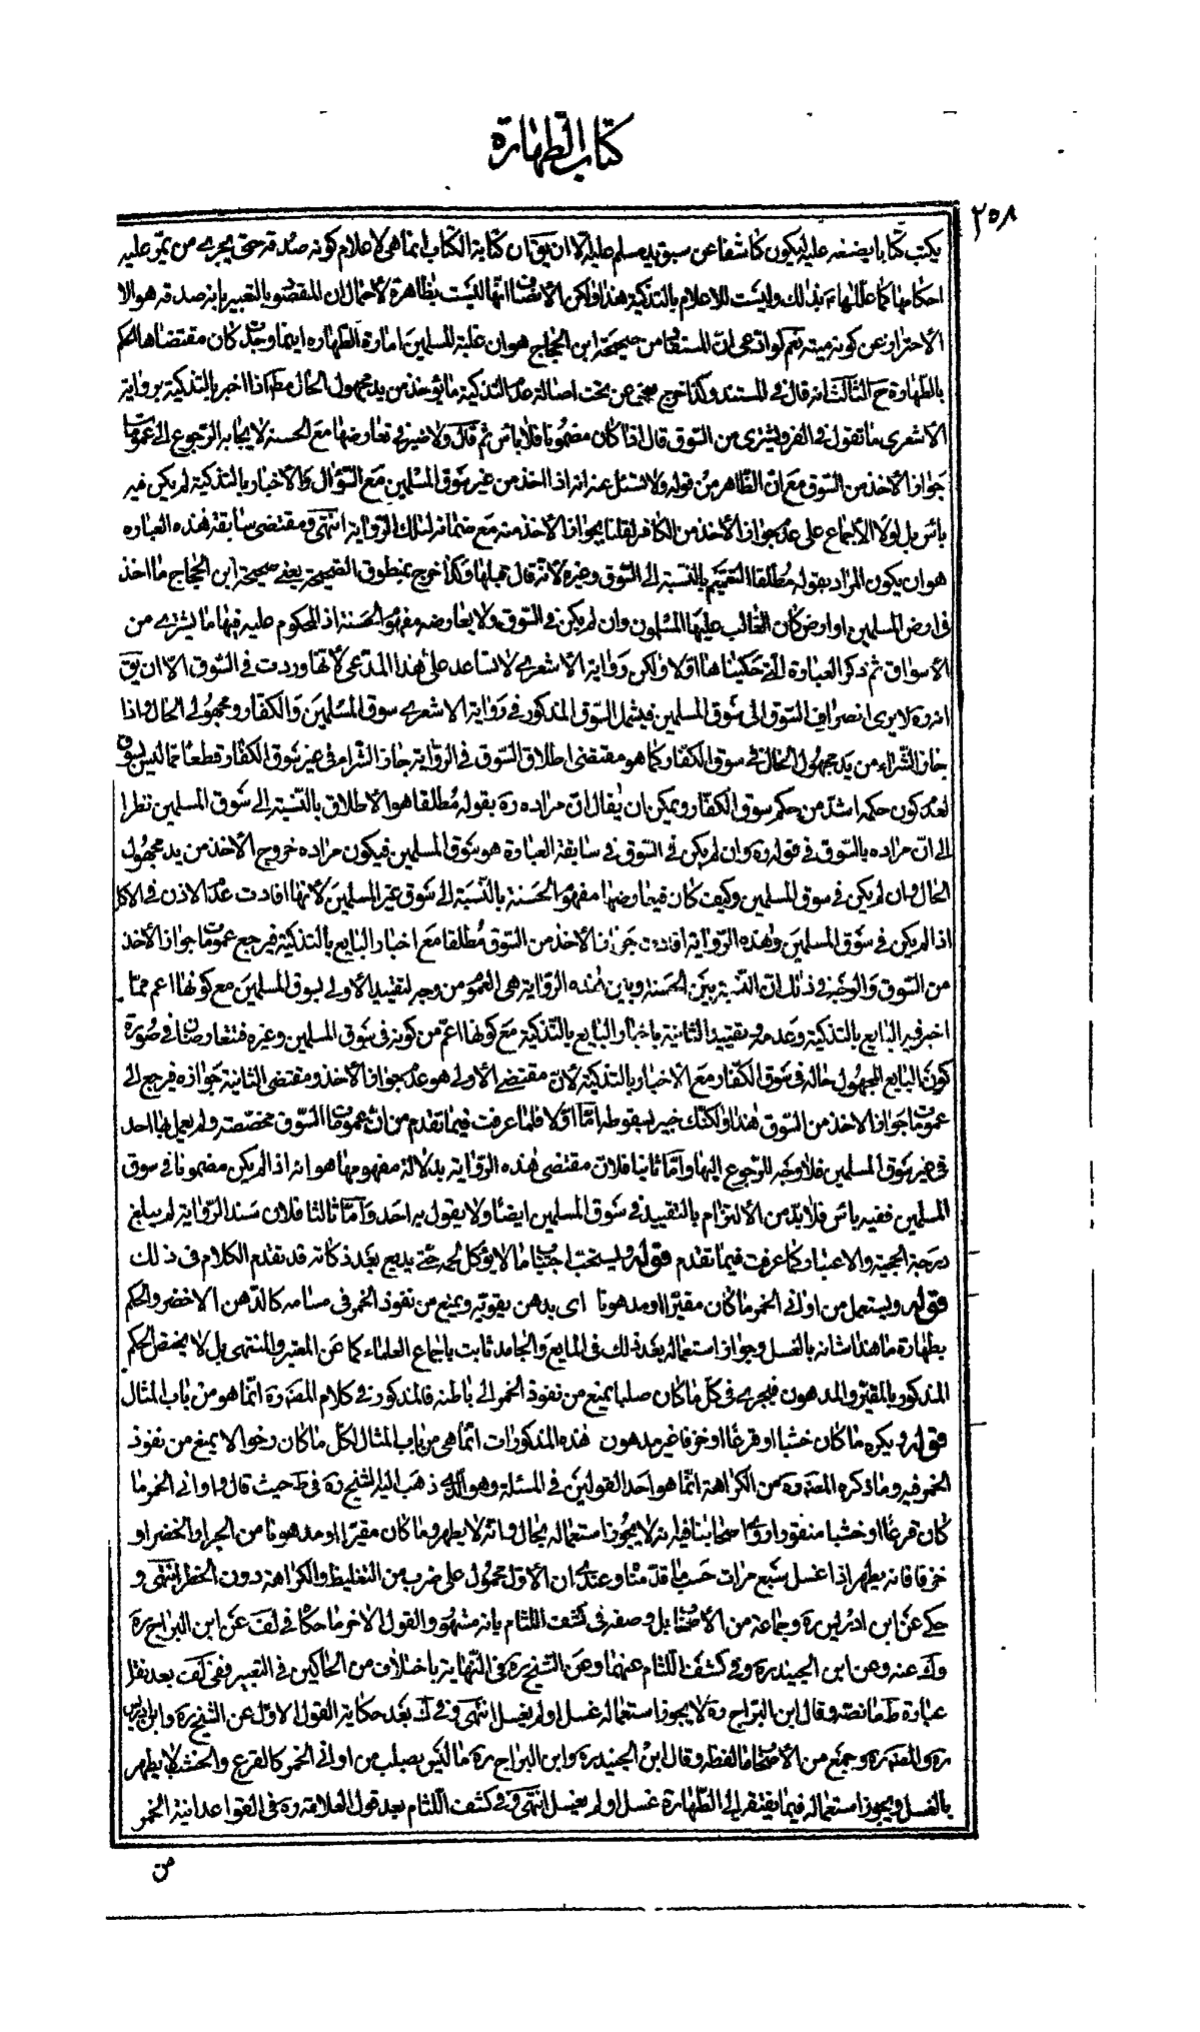 كتاب الطهارة
٢٥٨
يكتب كتابا يضعه عليه ليكون كاشفا عن سبق يد مسلم عليه الا ان يق ان كتابة الكتاب انما هى لاعلام كونه صدقة حتى يجرى من يمرّ عليه
احكامها كما علّلها بذلك وليست للاعلام بالتذكية هذا ولكن الأنصاف انّها ليست بظاهرة لاحتمال ان المقصود بالتعبير بانه صدقة هو الا
الأحتراز عن كونه ميتة نعم لو ادّعى انّ المستفاد من صحيحة ابن الحجاج هو ان غلبة المسلمين امارة الطهارة اينما وجدت كان مقتضاها الحكم
بالطهارة ح الثالث انه قال فى المستند وكذا خرج عن تحت اصالة عدم التذكية ما يؤخذ من يد مجهول الحال مط اذا اخبر بالتذكية برواية
الاشعرى ما تقول فى الفرو يشترى من السّوق قال اذا كان مضمونا فلا باس ثم قال ولا ضير فى تعارضها مع الحسنة لايجابه الرّجوع الى عمومات
جواز الأخذ من السّوق مع ان الظّاهر من قوله ولا تسئل عنه انه اذا اخذ من غير سوق المسلمين مع السّؤال والأخبار بالتذكية لم يكن فيه
باس بل لولا الأجماع على عدم جواز الأخذ من الكافر لقلنا بجواز الأخذ منه مع ضمانه لتلك الرّواية انتهى ومقتضى سابقة هذه العبارة
هو ان يكون المراد بقوله مطلقا التعميم بالنّسبة الى السّوق وغيره لانّه قال قبلها وكذا خرج بمنطوق الصّحيحة يعنى صحيحة ابن الحجاج ما اخذ
فى ارض المسلمين او ارض كان الغالب عليها المسلمون وان لم يكن فى السّوق ولا يعارضه مفهوم الحسنة اذ المحكوم عليه فيها ما يشترى من
الأسواق ثم ذكر العبارة التى حكيناها اوّلا ولكن رواية الأشعرى لا تساعد على هذا المدّعى لأنّها وردت فى السّوق الّا ان يق
انه ره لا يرى انصراف السّوق الى سوق المسلمين فيشمل السّوق المذكور فى رواية الاشعرى سوق المسلمين والكفّار ومجهولى الحال فاذا
جاز الشّراء من يد مجهول الحال فى سوق الكفّار كما هو مقتضى اطلاق السّوق فى الرواية جاز الشّراء فى غير سوق الكفّار قطعا ممّا ليس بسوق
لعدم كون حكمه اشدّ من حكم سوق الكفّار ويمكن ان يقال انّ مراده ره بقوله مطلقا هو الأطلاق بالنّسبة الى سوق المسلمين نظرا
الى انّ مراده بالسّوق فى قوله ره وان لم يكن فى السّوق فى سابقة العبارة هو سوق المسلمين فيكون مراده خروج الأخذ من يد مجهول
الحال وان لم يكن فى سوق المسلمين وكيف كان فيعارضها مفهوم الحسنة بالنّسبة الى سوق غير المسلمين لأنّها افادت عدم الاذن فى الاكل
اذا لم يكن فى سوق المسلمين وهذه الرّواية افادت جواز الأخذ من السّوق مطلقا مع اخبار البايع بالتذكية فيرجع عمومات جواز الأخذ
من السّوق والوجه فى ذلك انّ النّسبة بين الحسنة وبين هذه الرواية هى العموم من وجه لتقييد الأولى بسوق المسلمين مع كونها اعم ممّا
اخبر فيه البايع بالتذكية وعدمه وتقييد الثانية باخبار البايع بالتّذكية مع كونها اعمّ من كونه فى سوق المسلمين وغيره فتتعارضان فى صورة
كون البايع المجهول حاله فى سوق الكفّار مع الأخبار بالتذكية لانّ مقتضى الأولى هو عدم جواز الأخذ ومقتضى الثانية جوازه فيرجع الى
عمومات جواز الأخذ من السّوق هذا ولكنّك خبير بسقوطه امّا اوّلا فلما عرفت فيما تقدم من انّ عمومات السّوق مخصّصة ولم يعمل بها احد
فى غير سوق المسلمين فلا وجه للرّجوع اليها وامّا ثانيا فلانّ مقتضى هذه الرواية بدلالة مفهومها هو انه اذا لم يكن مضمونا فى سوق
المسلمين ففيه باس فلا بدّ من الألتزام بالتقييد فى سوق المسلمين ايضا ولا يقول به احد وامّا ثالثا فلان سند الرّواية لم يبلغ
درجة الحجية والاعتبار كما عرفت فيما تقدم قوله ويستحب اجتناب ما لا يؤكل لحمه حتّى يدبغ بعد ذكاته قد تقدم الكلام فى ذلك
قوله ويستعمل من اوانى الخمر ما كان مقيّرا او مدهونا اى بدهن يقويّه ويمنع من نفوذ الخمر فى مسامه كالدّهن الاخضر والحكم
بطهارة ما هذا شانه بالغسل وجواز استعماله بعد ذلك فى المايع والجامد ثابت باجماع العلماء كما عن المعتبر والمنتهى بل لا يختص الحكم
المذكور بالمقيّر والمدهون فيجرى فى كلّ ما كان صلبا يمنع من نفوذ الخمر الى باطنه فالمذكور فى كلام المصنّف ره انّما هو من باب المثال
قوله ويكره ما كان خشبا او قرعا او خزفا غير مدهون هذه المذكورات انّما هى من باب المثال لكلّ ما كان رخوا لا يمنع من نفوذ
الخمر فيه وما ذكره المصنّف ره من الكراهة انّما هو احد القولين فى المسئلة وهو الّذى ذهب اليه الشيخ ره فى ط حيث قال اوانى الخمر ما
كان قرعا او خشبا منقورا روى اصحابنا فيه انه لا يجوز استعماله بحال وانّه لا يطهر وما كان مقيّرا او مدهونا من الجرار الخضر او
خزفا فانه يطهر اذا غسل سبع مرات حسب ما قدّمناه وعندى ان الأوّل محمول على ضرب من التغليظ والكراهة دون الحظر انتهى و
حكى عن ابن ادريس ره وجماعة من الأصحاب بل وصفه فى كشف اللثام بانه مشهور والقول الاخر ما حكاه فى لف عن ابن البراج ره
وك عنه وعن ابن الجنيد ره وفى كشف اللثام عنهما وعن الشيخ ره فى النّهاية باختلاف من الحاكين فى التعبير ففى لف بعد نقل
عبارة ط ما نصّه وقال ابن البرّاج ره لا يجوز استعماله غسل او لم يغسل انتهى وفى ك بعد حكاية القول الاوّل عن الشيخ ره وابن ادريس
ره والمصنّف ره وجمع من الأصحاب ما لفظه وقال ابن الجنيد ره وابن البراج ره ما ليس بصلب من اوانى الخمر كالقرع والخشب لا يطهر
بالغسل ولا يجوز استعماله فيما يفتقر الى الطّهارة غسل او لم يغسل انتهى وفى كشف اللّثام بعد قول العلامة ره فى القواعد انية الخمر
من